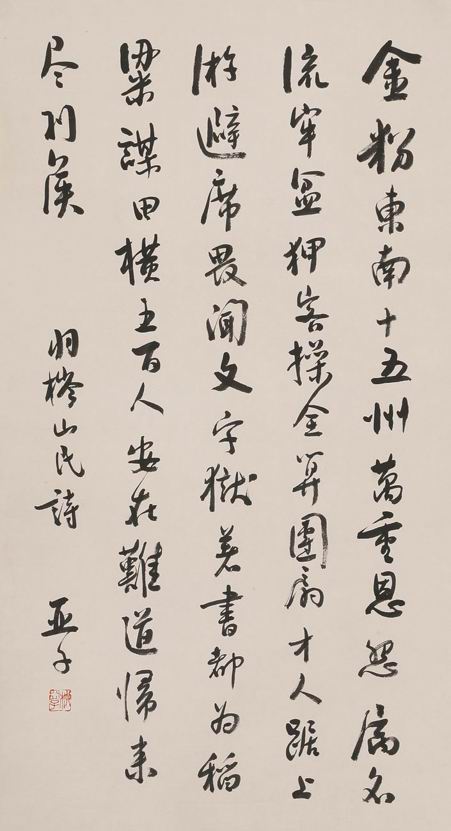 金粉東南十五州萬重恩怨屬名
流牢盆狎客操全算團扇才人踞上
游避席畏聞文字獄著書都为稻
粱謀田橫五百人安在難道歸来
尽列侯
羽琌山民詩 亞子